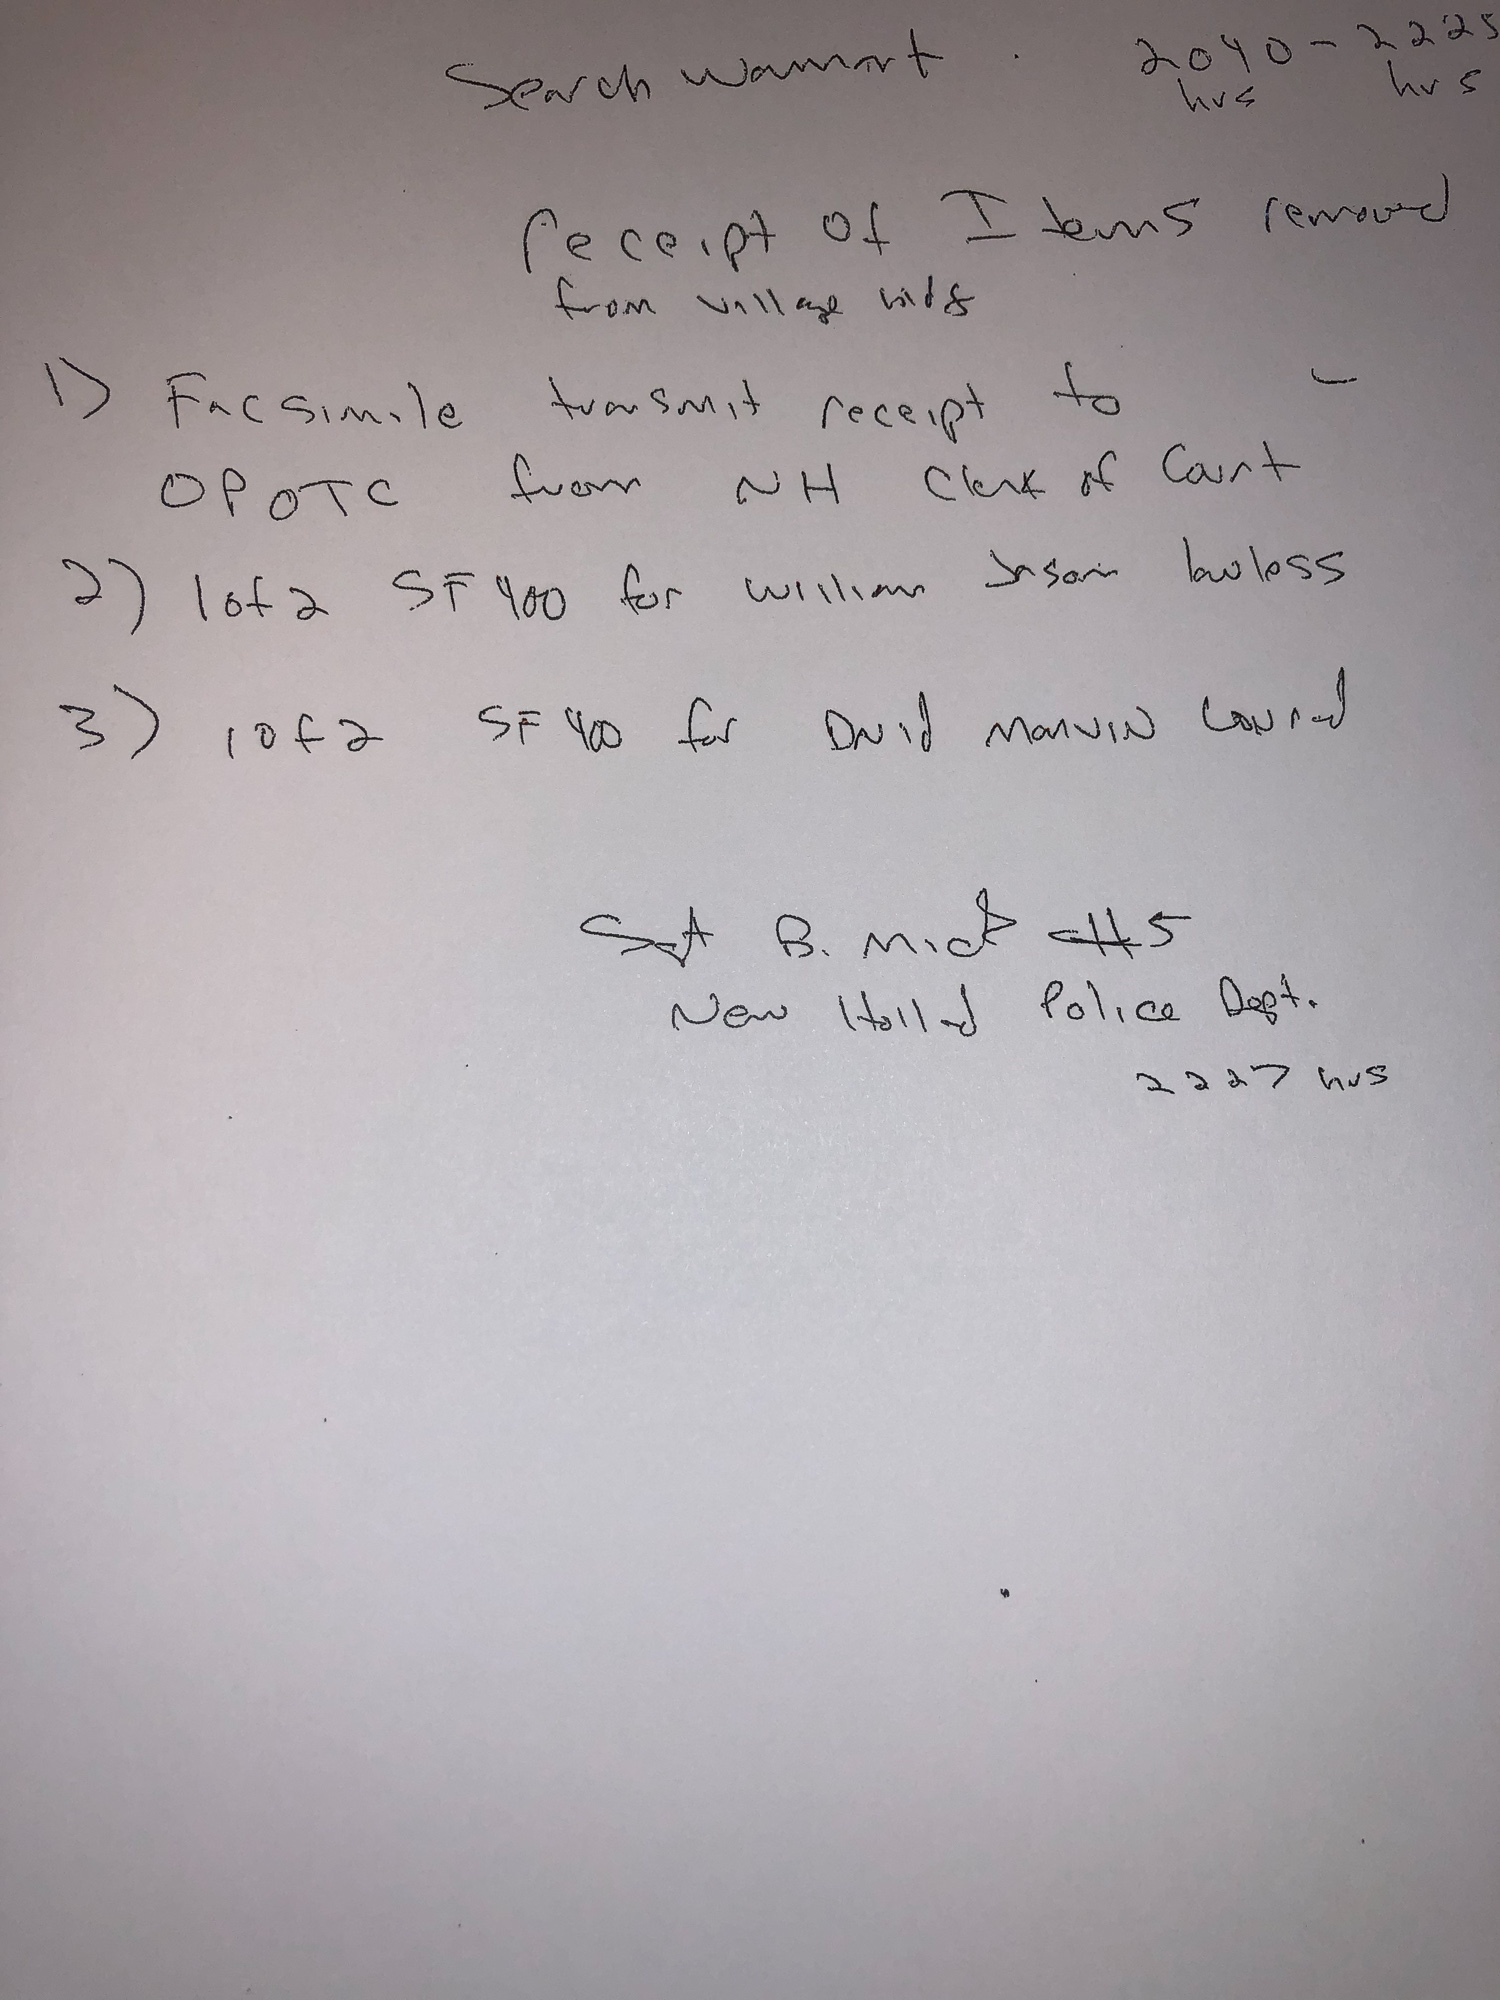 Search Warrant 2040 - 2225
hrs hrs
receipt of Items removed
from village bldg
1) Facsimile transmit receipt to
OPOTC from NH Clerk of Court
2) 1 of 2 SF 400 for William Jason Lawless
3) 1 of 2 SF 400 for David Marvin Conrad
Sgt B. Mick #5
New Holland Police Dept.
2227 hrs